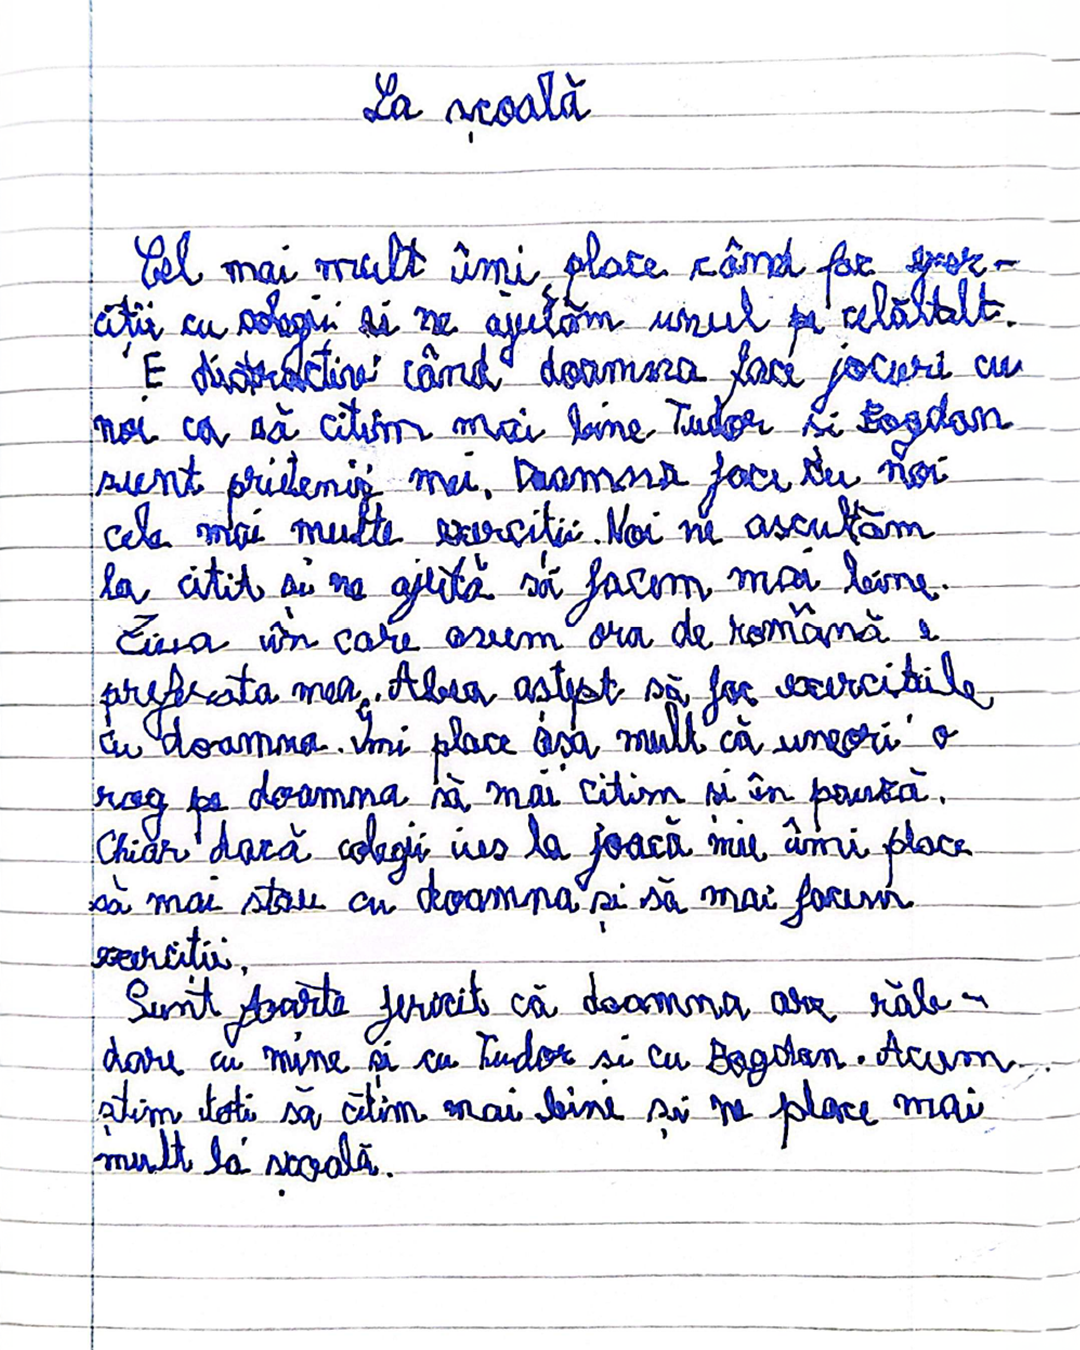 La școală
Cel mai mult îmi place când fac exer-
ciții cu colegii si ne ajutăm unul pe celălalt.
E distractiv când doamna face jocuri cu
noi ca să citim mai bine. Tudor si Bogdan
sunt prietenii mei. Doamna face cu noi
cele mai multe exercitii. Noi ne ascultăm
la citit si ne ajută să facem mai bine.
Ziua în care avem ora de română e
preferata mea. Abea astept să fac exercitiile
cu doamna. Îmi place asa mult că uneori o
rog pe doamna să mai citim si în pauză.
Chiar dacă colegii ies la joacă mie îmi place
să mai stau cu doamna și să mai facem
exercitii.
Sunt foarte fericit că doamna are răb-
dare cu mine si cu Tudor si cu Bogdan. Acum
știm toti să citim mai bine și ne place mai
mult la școală.